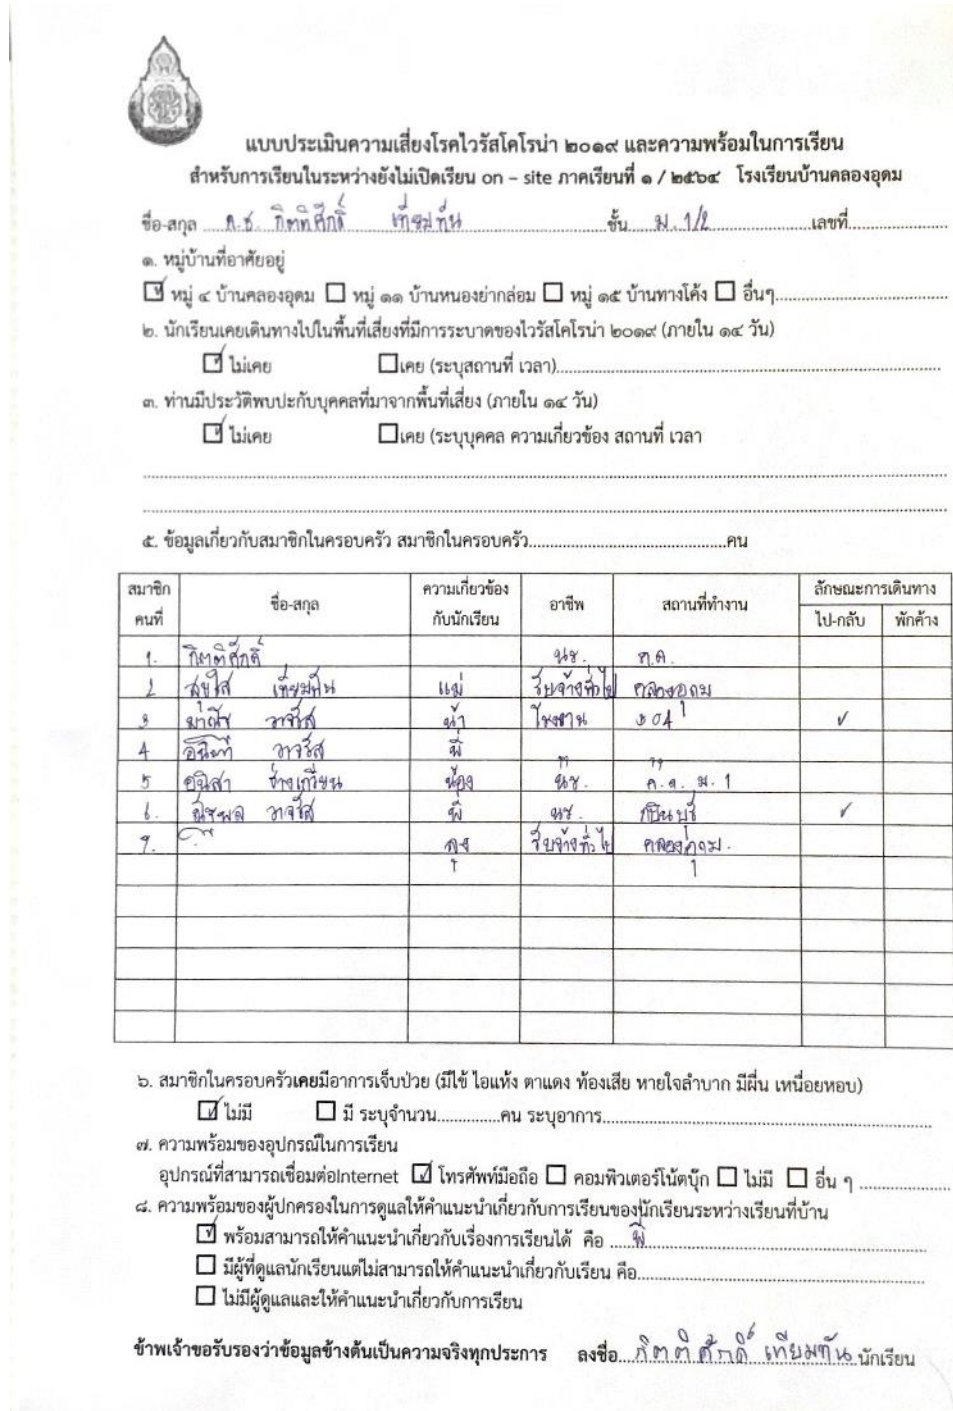 แบบประเมินความเสี่ยงโรคไวรัสโคโรน่า ๒๐๑๙ และความพร้อมในการเรียน
สำหรับการเรียนในระหว่างยังไม่เปิดเรียน on – site ภาคเรียนที่ ๑ / ๒๕๖๔ โรงเรียนบ้านคลองอุดม
ชื่อ-สกุล ด.ช. กิตติศักดิ์ เทียมทัน ชั้น ม.1/2 เลขที่
๑. หมู่บ้านที่อาศัยอยู่
☑ หมู่ ๔ บ้านคลองอุดม ☐ หมู่ ๑๑ บ้านหนองย่ากล่อม ☐ หมู่ ๑๕ บ้านทางโค้ง ☐ อื่นๆ
๒. นักเรียนเคยเดินทางไปในพื้นที่เสี่ยงที่มีการระบาดของไวรัสโคโรน่า ๒๐๑๙ (ภายใน ๑๔ วัน)
☑ ไม่เคย ☐เคย (ระบุสถานที่ เวลา)
๓. ท่านมีประวัติพบปะกับบุคคลที่มาจากพื้นที่เสี่ยง (ภายใน ๑๔ วัน)
☑ ไม่เคย ☐เคย (ระบุบุคคล ความเกี่ยวข้อง สถานที่ เวลา
๕. ข้อมูลเกี่ยวกับสมาชิกในครอบครัว สมาชิกในครอบครัว คน
สมาชิกคนที่ ชื่อ-สกุล ความเกี่ยวข้องกับนักเรียน อาชีพ สถานที่ทำงาน ลักษณะการเดินทาง
ไป-กลับ พักค้าง
1. กิตติศักดิ์ นร. ค.ด.
2 สุขใส เทียมทัน แม่ รับจ้างทั่วไป คลองอุดม
3 วาจรัส น้า โรงงาน 304 ✓
4 วาจรัส พี่
5 ช่างเกวียน น้อง นร. ม.1
6. วาจรัส พี่ นร. กบินบุรี ✓
7. ลุง รับจ้างทั่วไป คลองอุดม.
๖. สมาชิกในครอบครัวเคยมีอาการเจ็บป่วย (มีไข้ ไอแห้ง ตาแดง ท้องเสีย หายใจลำบาก มีผื่น เหนื่อยหอบ)
☑ ไม่มี ☐ มี ระบุจำนวน คน ระบุอาการ
๗. ความพร้อมของอุปกรณ์ในการเรียน
อุปกรณ์ที่สามารถเชื่อมต่อInternet ☑ โทรศัพท์มือถือ ☐ คอมพิวเตอร์โน้ตบุ๊ก ☐ ไม่มี ☐ อื่น ๆ
๘. ความพร้อมของผู้ปกครองในการดูแลให้คำแนะนำเกี่ยวกับการเรียนของนักเรียนระหว่างเรียนที่บ้าน
☑ พร้อมสามารถให้คำแนะนำเกี่ยวกับเรื่องการเรียนได้ คือ พี่
☐ มีผู้ที่ดูแลนักเรียนแต่ไม่สามารถให้คำแนะนำเกี่ยวกับเรียน คือ
☐ ไม่มีผู้ดูแลและให้คำแนะนำเกี่ยวกับการเรียน
ข้าพเจ้าขอรับรองว่าข้อมูลข้างต้นเป็นความจริงทุกประการ ลงชื่อ กิตติศักดิ์ เทียมทัน นักเรียน